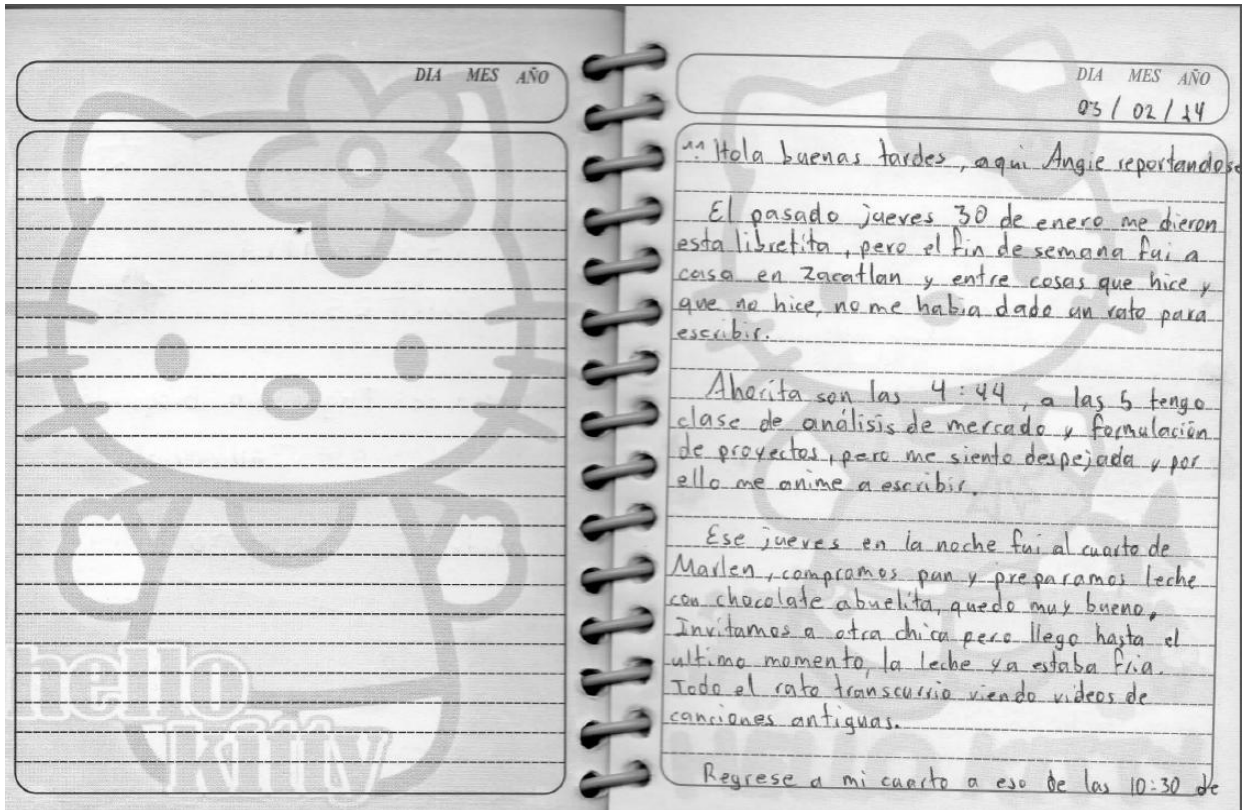 DIA MES AÑO
hello
kitty
DIA MES AÑO
03 / 02 / 14
^^ Hola buenas tardes, aqui Angie reportandose
El pasado jueves 30 de enero me dieron
esta libretita, pero el fin de semana fui a
casa en Zacatlan y entre cosas que hice y
que no hice, no me habia dado un rato para
escribir.
Ahorita son las 4:44, a las 5 tengo
clase de análisis de mercado y formulación
de proyectos, pero me siento despejada y por
ello me anime a escribir.
Ese jueves en la noche fui al cuarto de
Marlen, compramos pan y preparamos leche
con chocolate abuelita, quedo muy bueno.
Invitamos a otra chica pero llego hasta el
ultimo momento, la leche ya estaba fria.
Todo el rato transcurrio viendo videos de
canciones antiguas.
Regrese a mi cuarto a eso de las 10:30 de